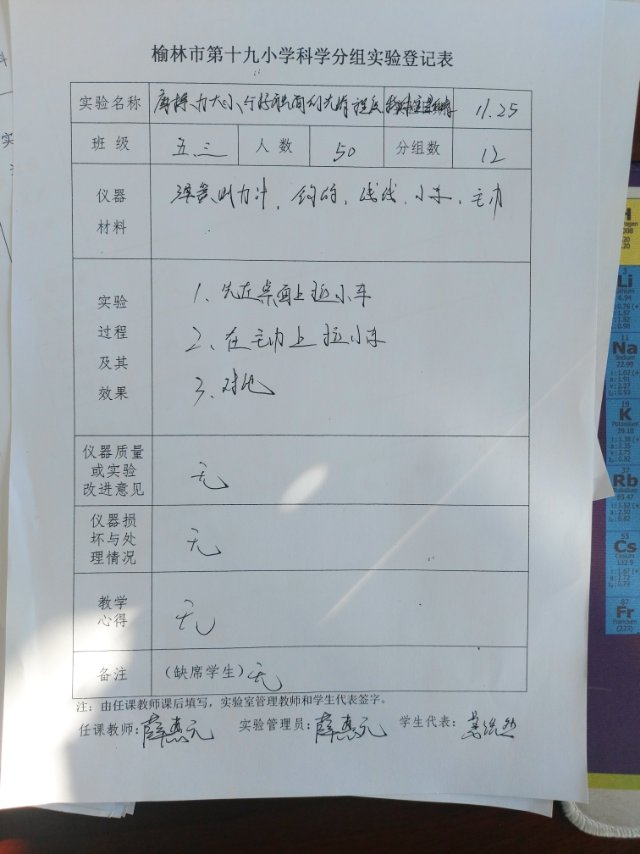 榆林市第十九小学科学分组实验登记表
实验名称 摩擦力大小 11.25
班级 五三 人数 50 分组数 12
仪器材料 测力计、钩码、小车、毛巾
实验过程及其效果
1、先在桌面上拉小车
2、在毛巾上拉小车
3、对比
仪器质量或实验改进意见 无
仪器损坏与处理情况 无
教学心得 无
备注 (缺席学生) 无
注:由任课教师课后填写,实验室管理教师和学生代表签字。
任课教师: 薛惠元 实验管理员: 薛惠元 学生代表:
H
Li
Na
K
Rb
Cs
Fr